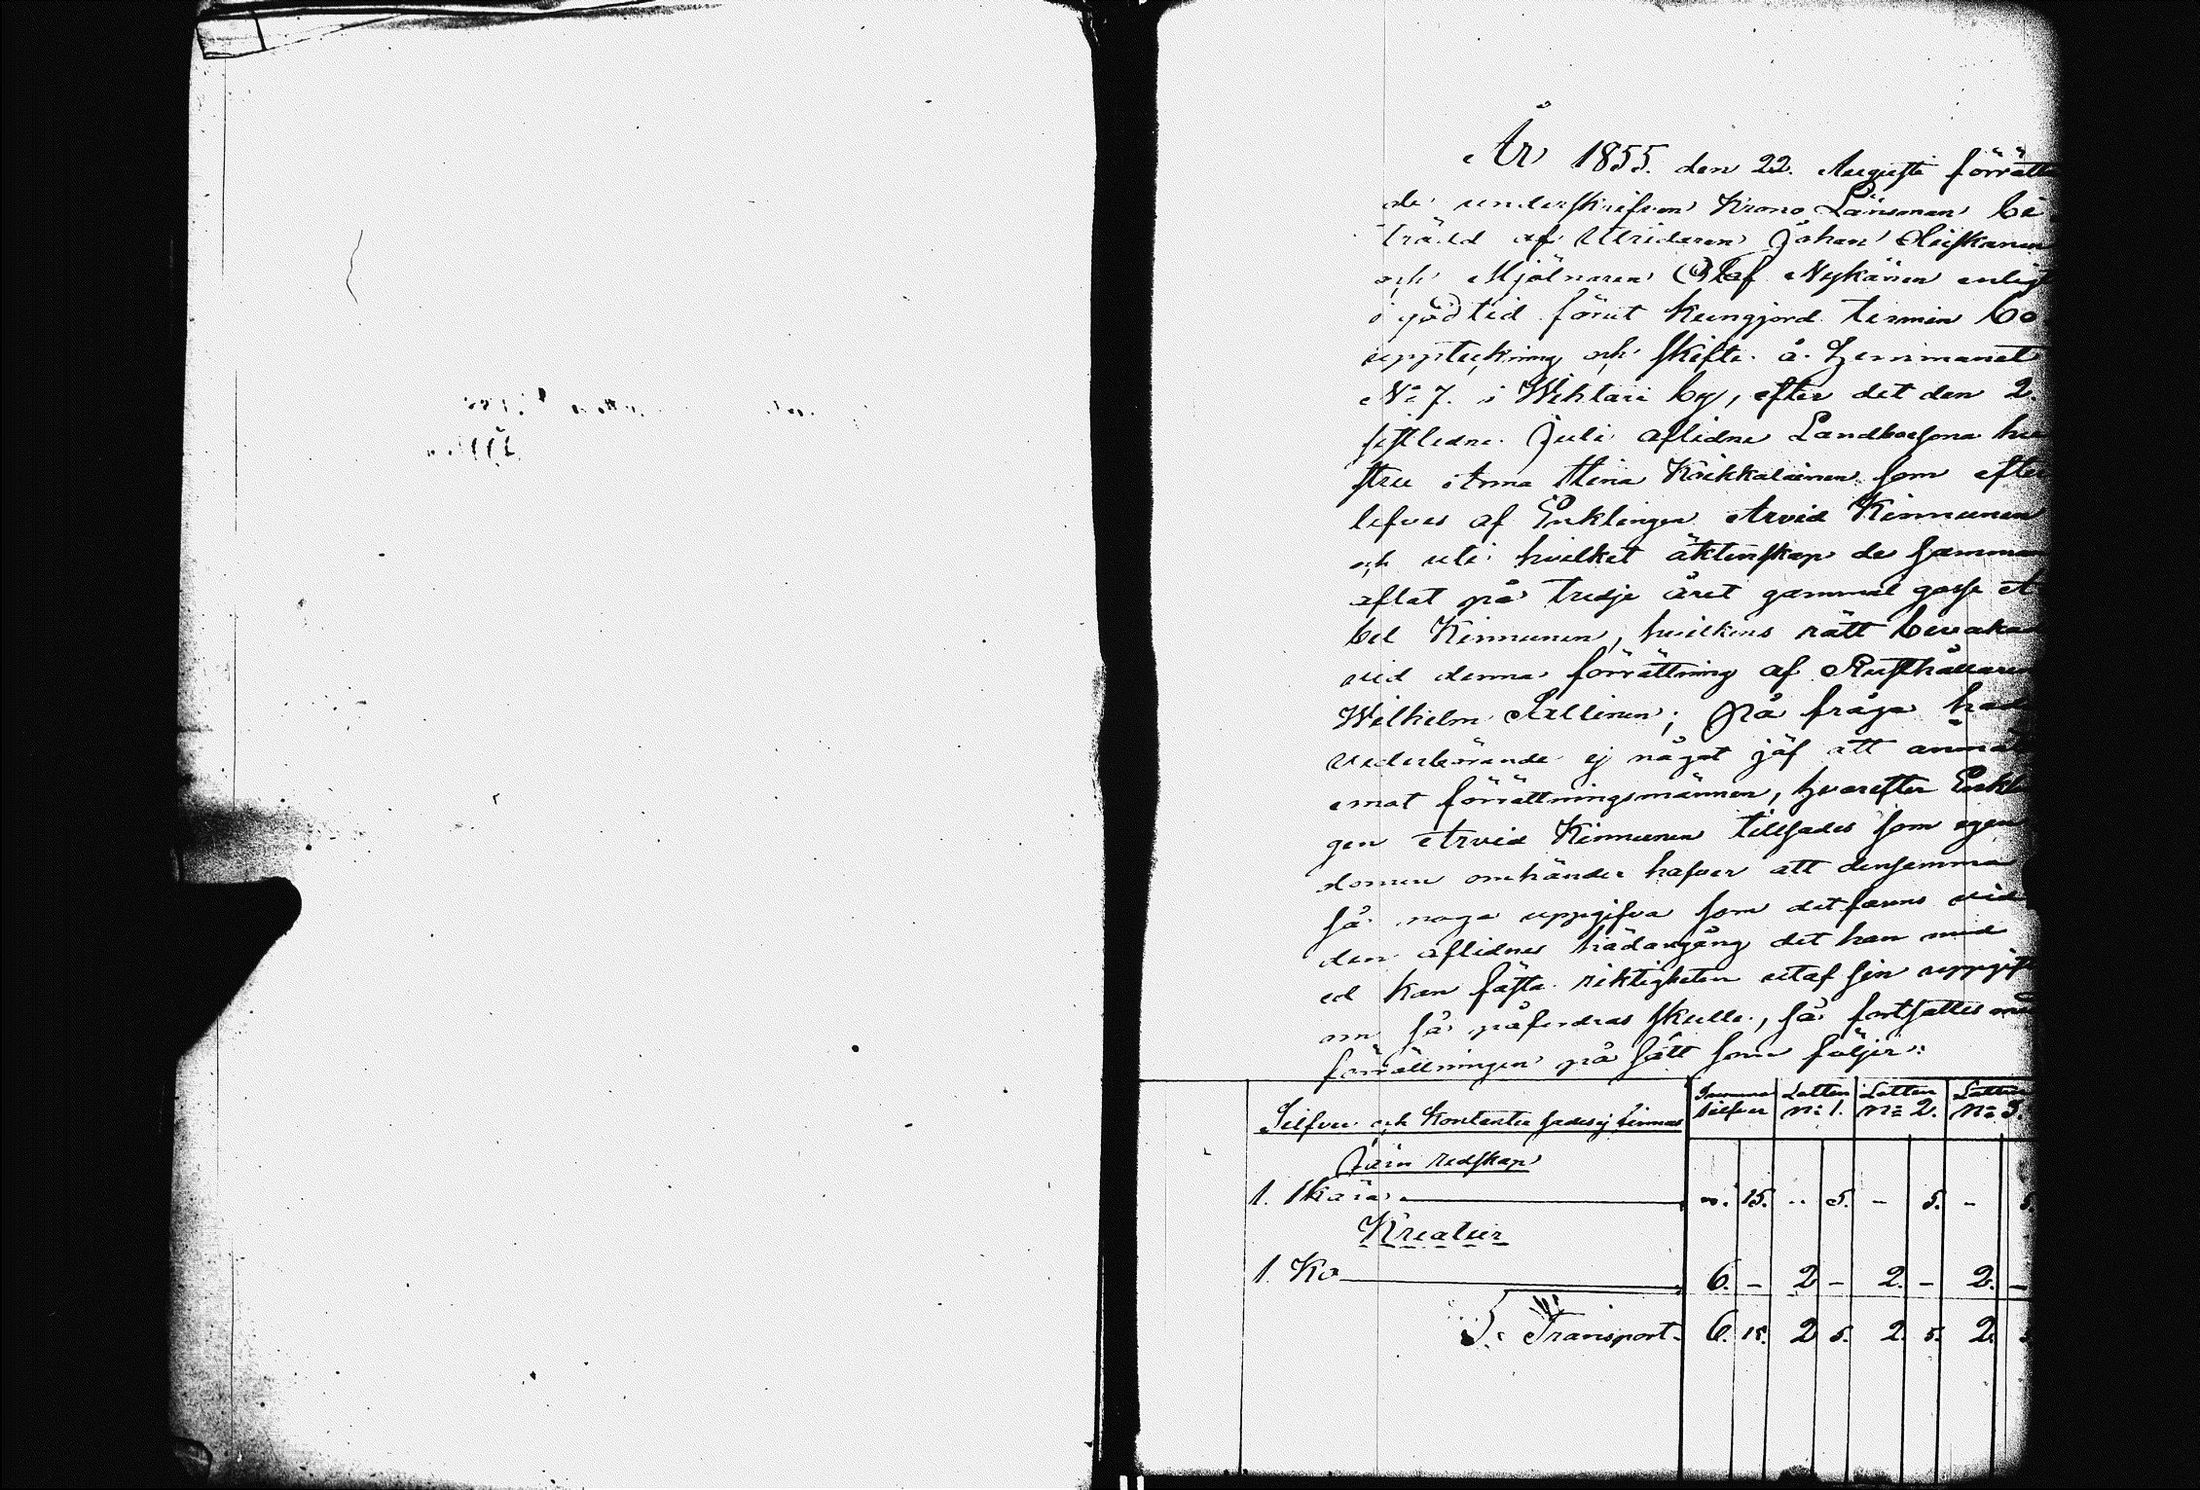 År 1855. den 22. Augusti förrätta
de underskrifven Krono Länsman bi
trädd af Utridaren Johan Heiskanen
och Mjölnaren Olof Nykänen enligt
i god tid förut kungjord termin bo
uppteckning och skifte å hemmanet
No 7. i Wihtari by, efter det den 2.
sistledne Juli aflidne Landboesona hu
stru Anna Stina Koikkalainen som efter
lefves af Enklingen Arvid Kinnunen
och uti hvilket äktenskap de samman
aflat på tredje året gammal gosse A
bel Kinnunen, hvilkens rätt bevakas
vid denna förrättning af Rusthållaren
Wilhelm Tallinen; på fråga had
vederbörande ej något jäf att anmäl
emot förrättningsmännen, hvarefter Enkli
gen Arvid Kinnunen tillsades som egen
domen omhänder hafver att densamma
så noga uppgifva som det fanns vid
den aflidnes hädangång det han med
ed kan fästa riktigheten utaf sin uppgift
om så påfordras skulle, så fortsattes med
förrättningen på sätt som följer:
Summa silfver Lotten n: 1. Lotten n: 2. Lotten n: 3.
Silfver och Kontanter sades ej finnas
Järn redskap
1. Skära 15. 5. - 5. - 5.
Kreatur
1. Ko 6. - 2 - 2. - 2. -
S: Transport 6. 15. 2 5. 2. 5. 2.